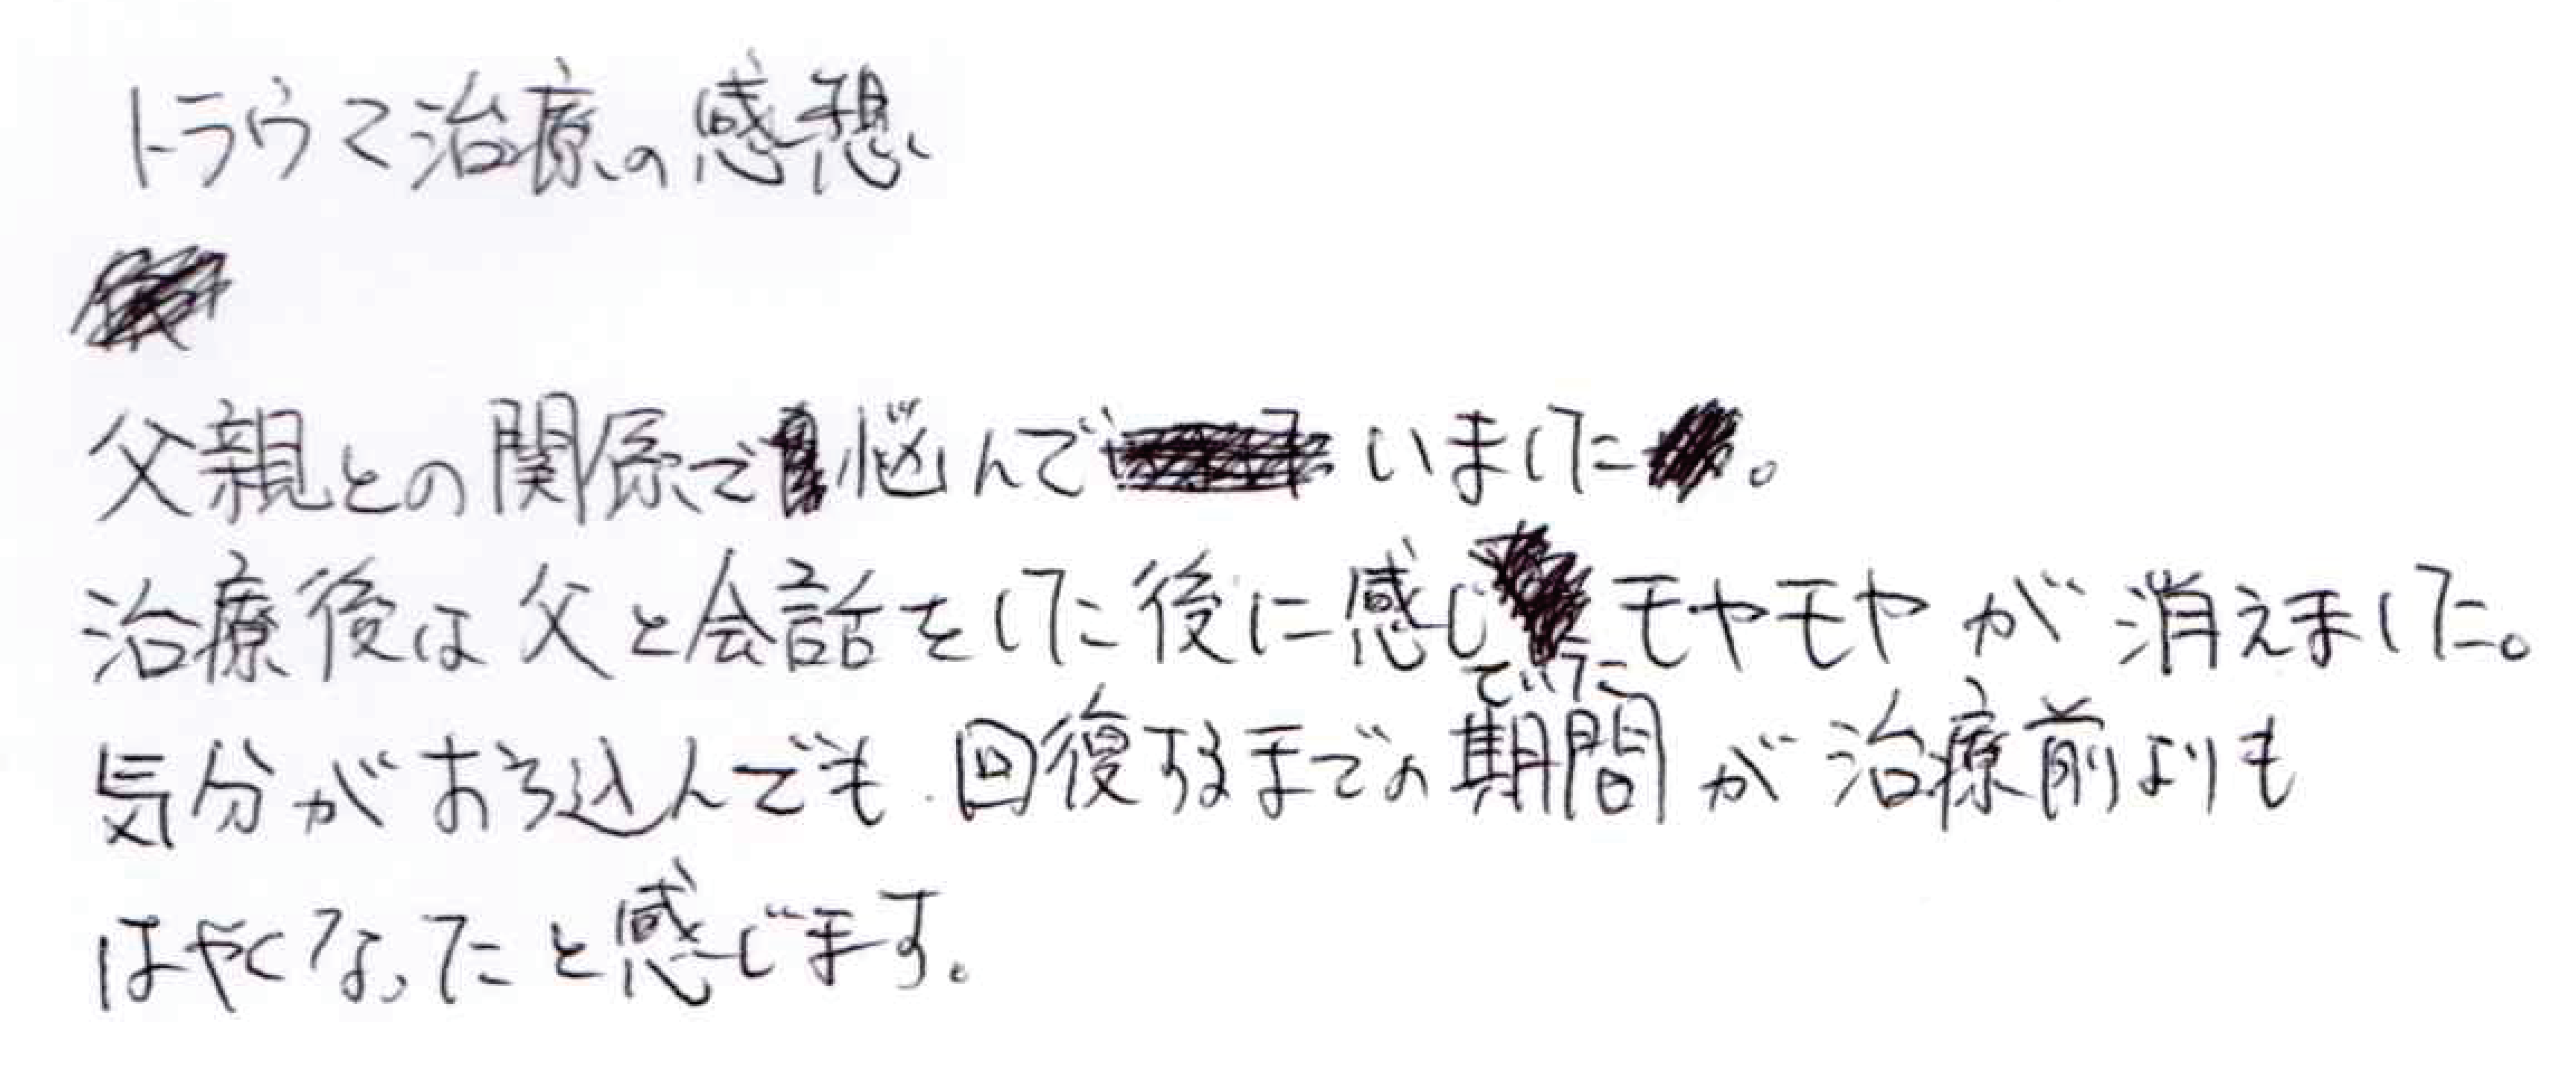 トラウマ治療の感想
父親との関係で悩んでいました。
治療後は父と会話をした後に感じていたモヤモヤが消えました。
気分がおち込んでも回復するまでの期間が治療前よりも
はやくなったと感じます。